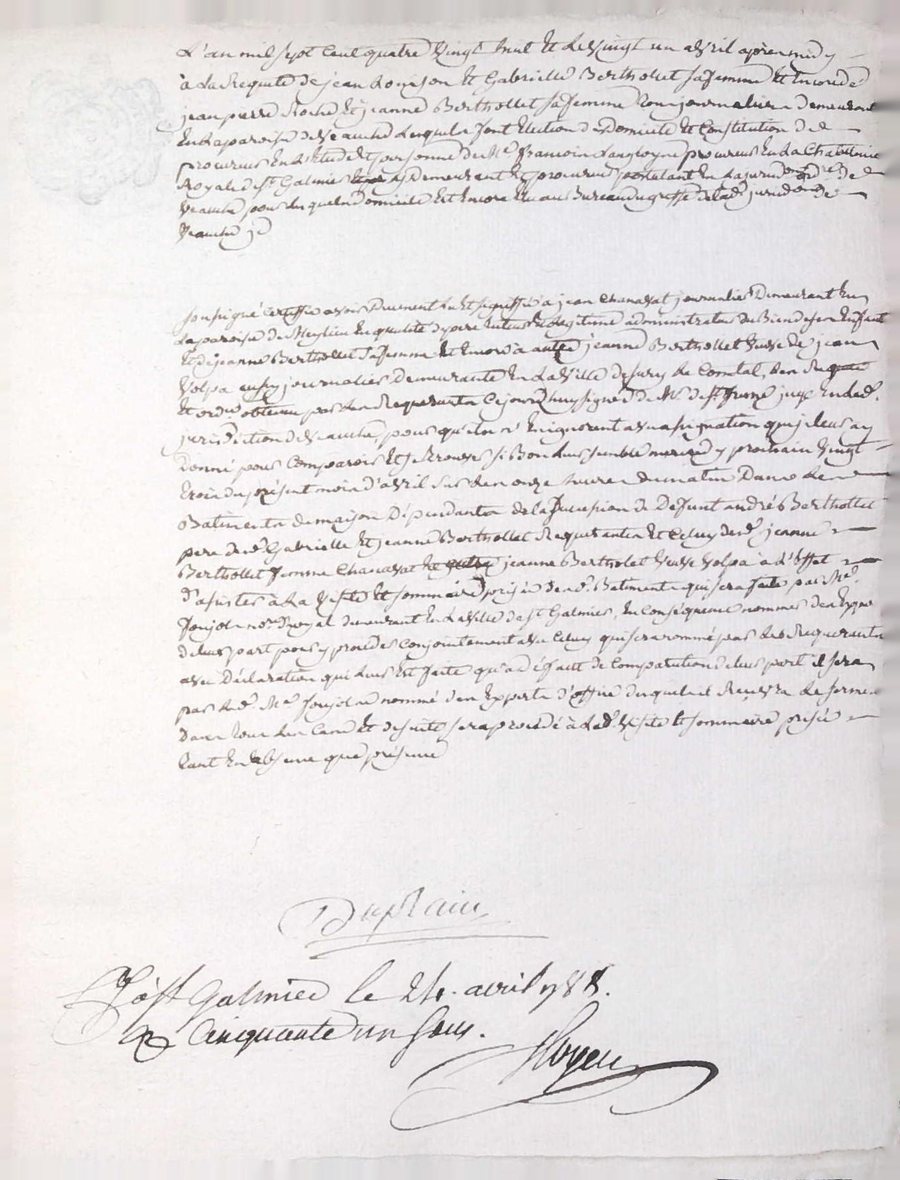 L'an mil sept Cent quatre vingt huit Et Le vingt un avril après midy
à La Requete de jean Et Gabrielle Berthollet sa femme Et Encore de
jean pierre Roche Et jeanne Berthollet sa femme Tous journaliers demeurant
En La paroisse de Veauche Lesquels font Election de domicile Et Constitution de
procureur En L'Etude Et personne de Me procureur En La Chatelenie
Royale de St Galmier y Demeurant Et procureur postulant En La jurisdon de
Veauche pour Lesquels domicile Est Encore Elu au Bureau du greffe de lade jurisdon de
Veauche je
soussigné certiffie avoir Duement Lu Et signiffié a jean Chanavat journalier Demeurant En
La paroisse de Meylieu En qualité de pere Tuteur Et Legitime administrateur du Bien de ses Enfant
Et de jeanne Berthollet sa femme Et Encore à jeanne Berthollet Veuve de jean
Volpa journalier Demeurante En La Ville de sury Le Comtal, Les Requete
Et ordce obtenu par Les Requerants Cejourdhuy signée de Mr juge En lade
jurisdiction de Veauche, pour qu'ils n'En ignorent avec assignation que je leur ay
Donné pour Comparoir Et se Trouver si Bon Leur semble mercredy prochain Vingt
Trois du présent mois d'avril sur Les onze heures du matin Dans Les
Batiments de maison Dépendants de la succession de Defunt andré Berthollet
pere desd. Gabrielle Et jeanne Berthollet Requerantes Et Celuy desd. jeanne
Berthollet femme Chanavat jeanne Berthollet Veuve Volpa à L'Effet
D'assister à La Visite Et sommaire prisée desd. Batiments qui sera faite par Me
nore Royal demeurant En La Ville de St Galmier, En Conséquence nommer des Experts
de leur part pour y proceder Conjointement avec Celuy qui sera nommé par Les Requerants
avec Déclaration qui Leur Est faite qu'a défaut de Comparution de leur part il sera
par Led. Me nommé des Experts d'office desquels il Recevra Le serment
Dans Tous Les Cas Et de suite sera procédé à Lad. Visite Et sommaire prisée
Tant En absence que présence
Duplain
à St Galmier le 24. avril 1788.
R. Cinquante un sous.